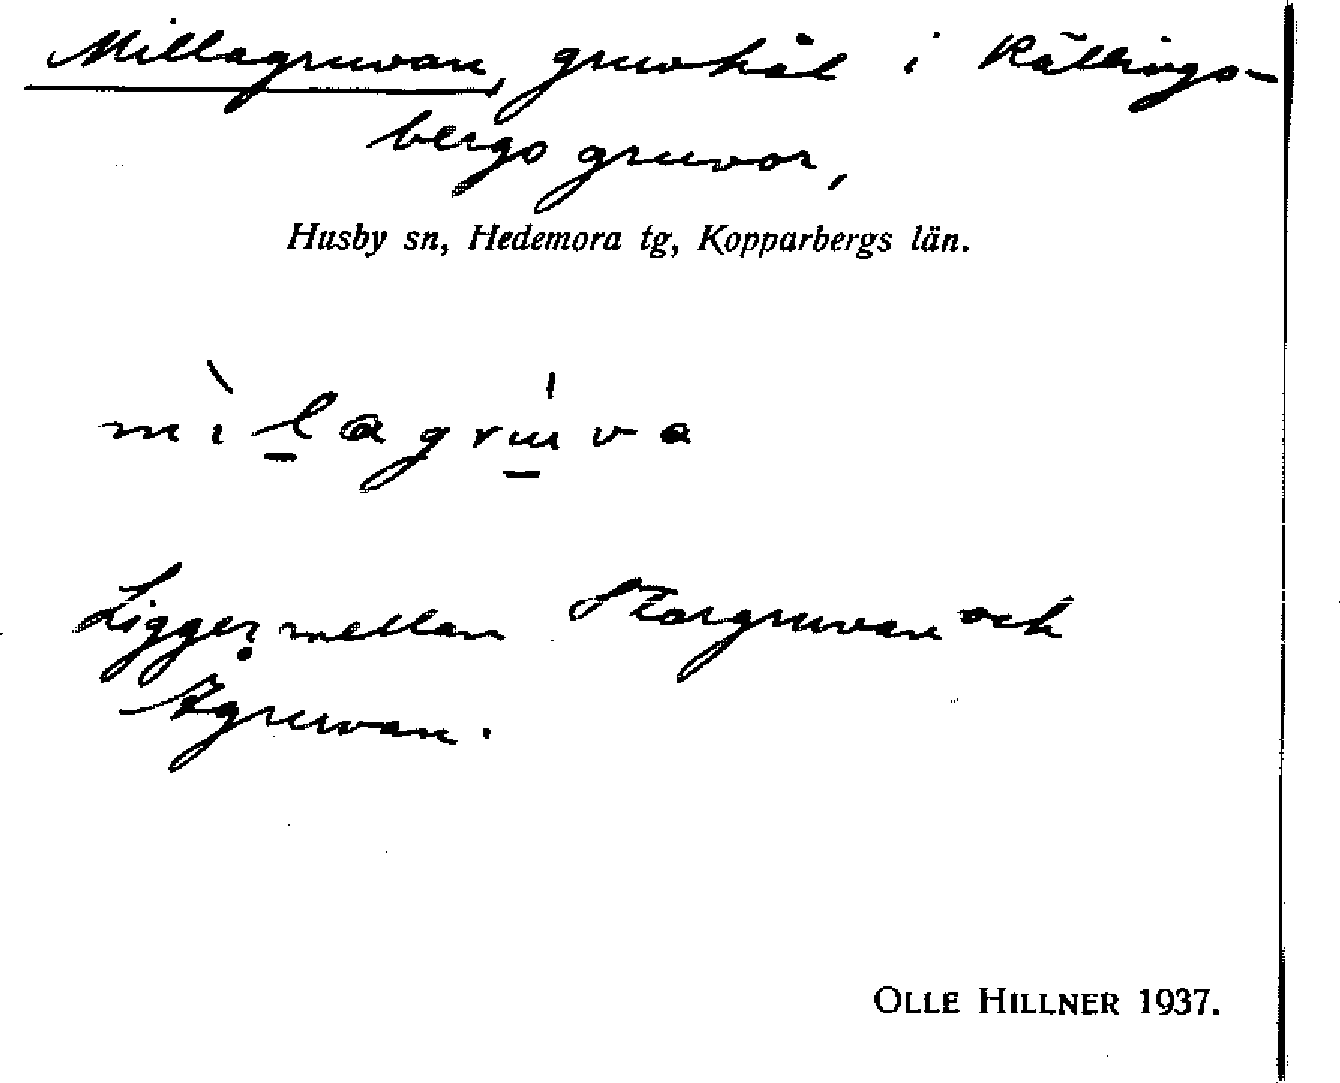 Millagruvan, gruvhål i Rällings-
bergs gruvor,
Husby sn, Hedemora tg, Kopparbergs län.
mìlagrúva
Ligger mellan Storgruvan och
OLLE HILLNER 1937.